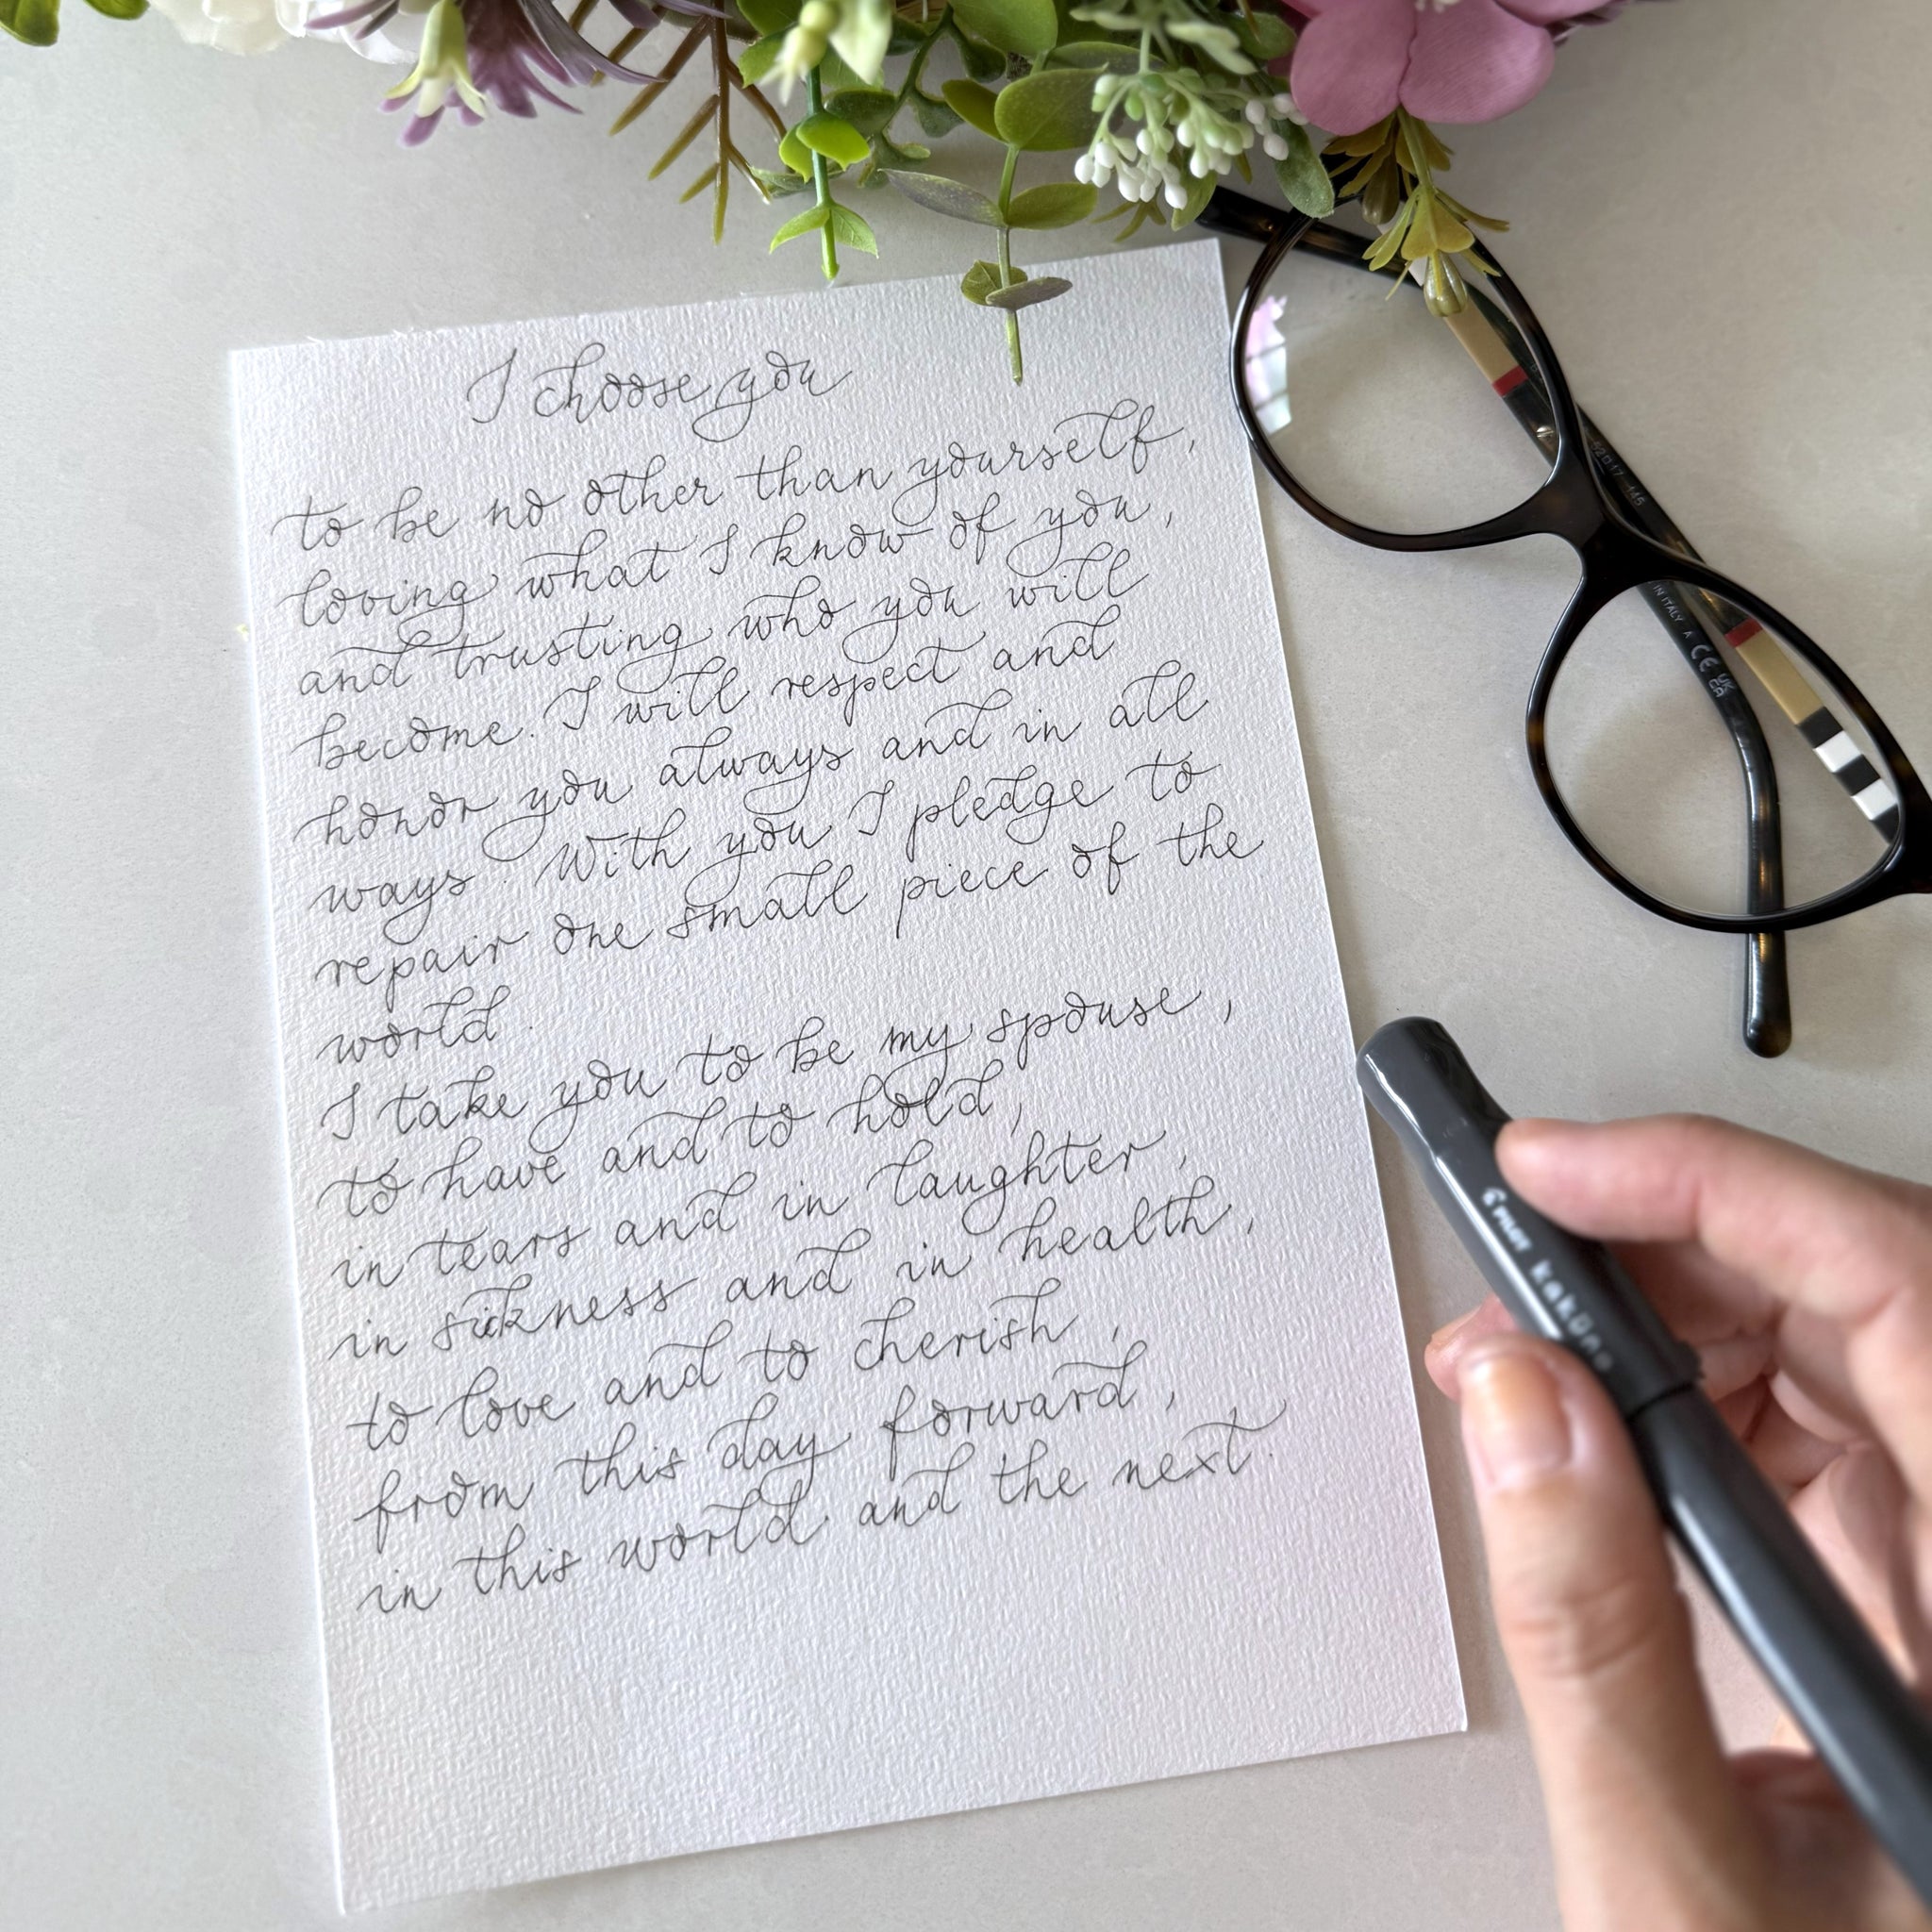 I choose you
to be no other than yourself,
loving what I know of you,
and trusting who you will
become. I will respect and
honor you always and in all
ways. With you I pledge to
repair one small piece of the
world.
I take you to be my spouse,
to have and to hold,
in tears and in laughter,
in sickness and in health,
to love and to cherish,
from this day forward,
in this world and the next.
52□17 145
IN ITALY A CE UK CA
PILOT kakuno